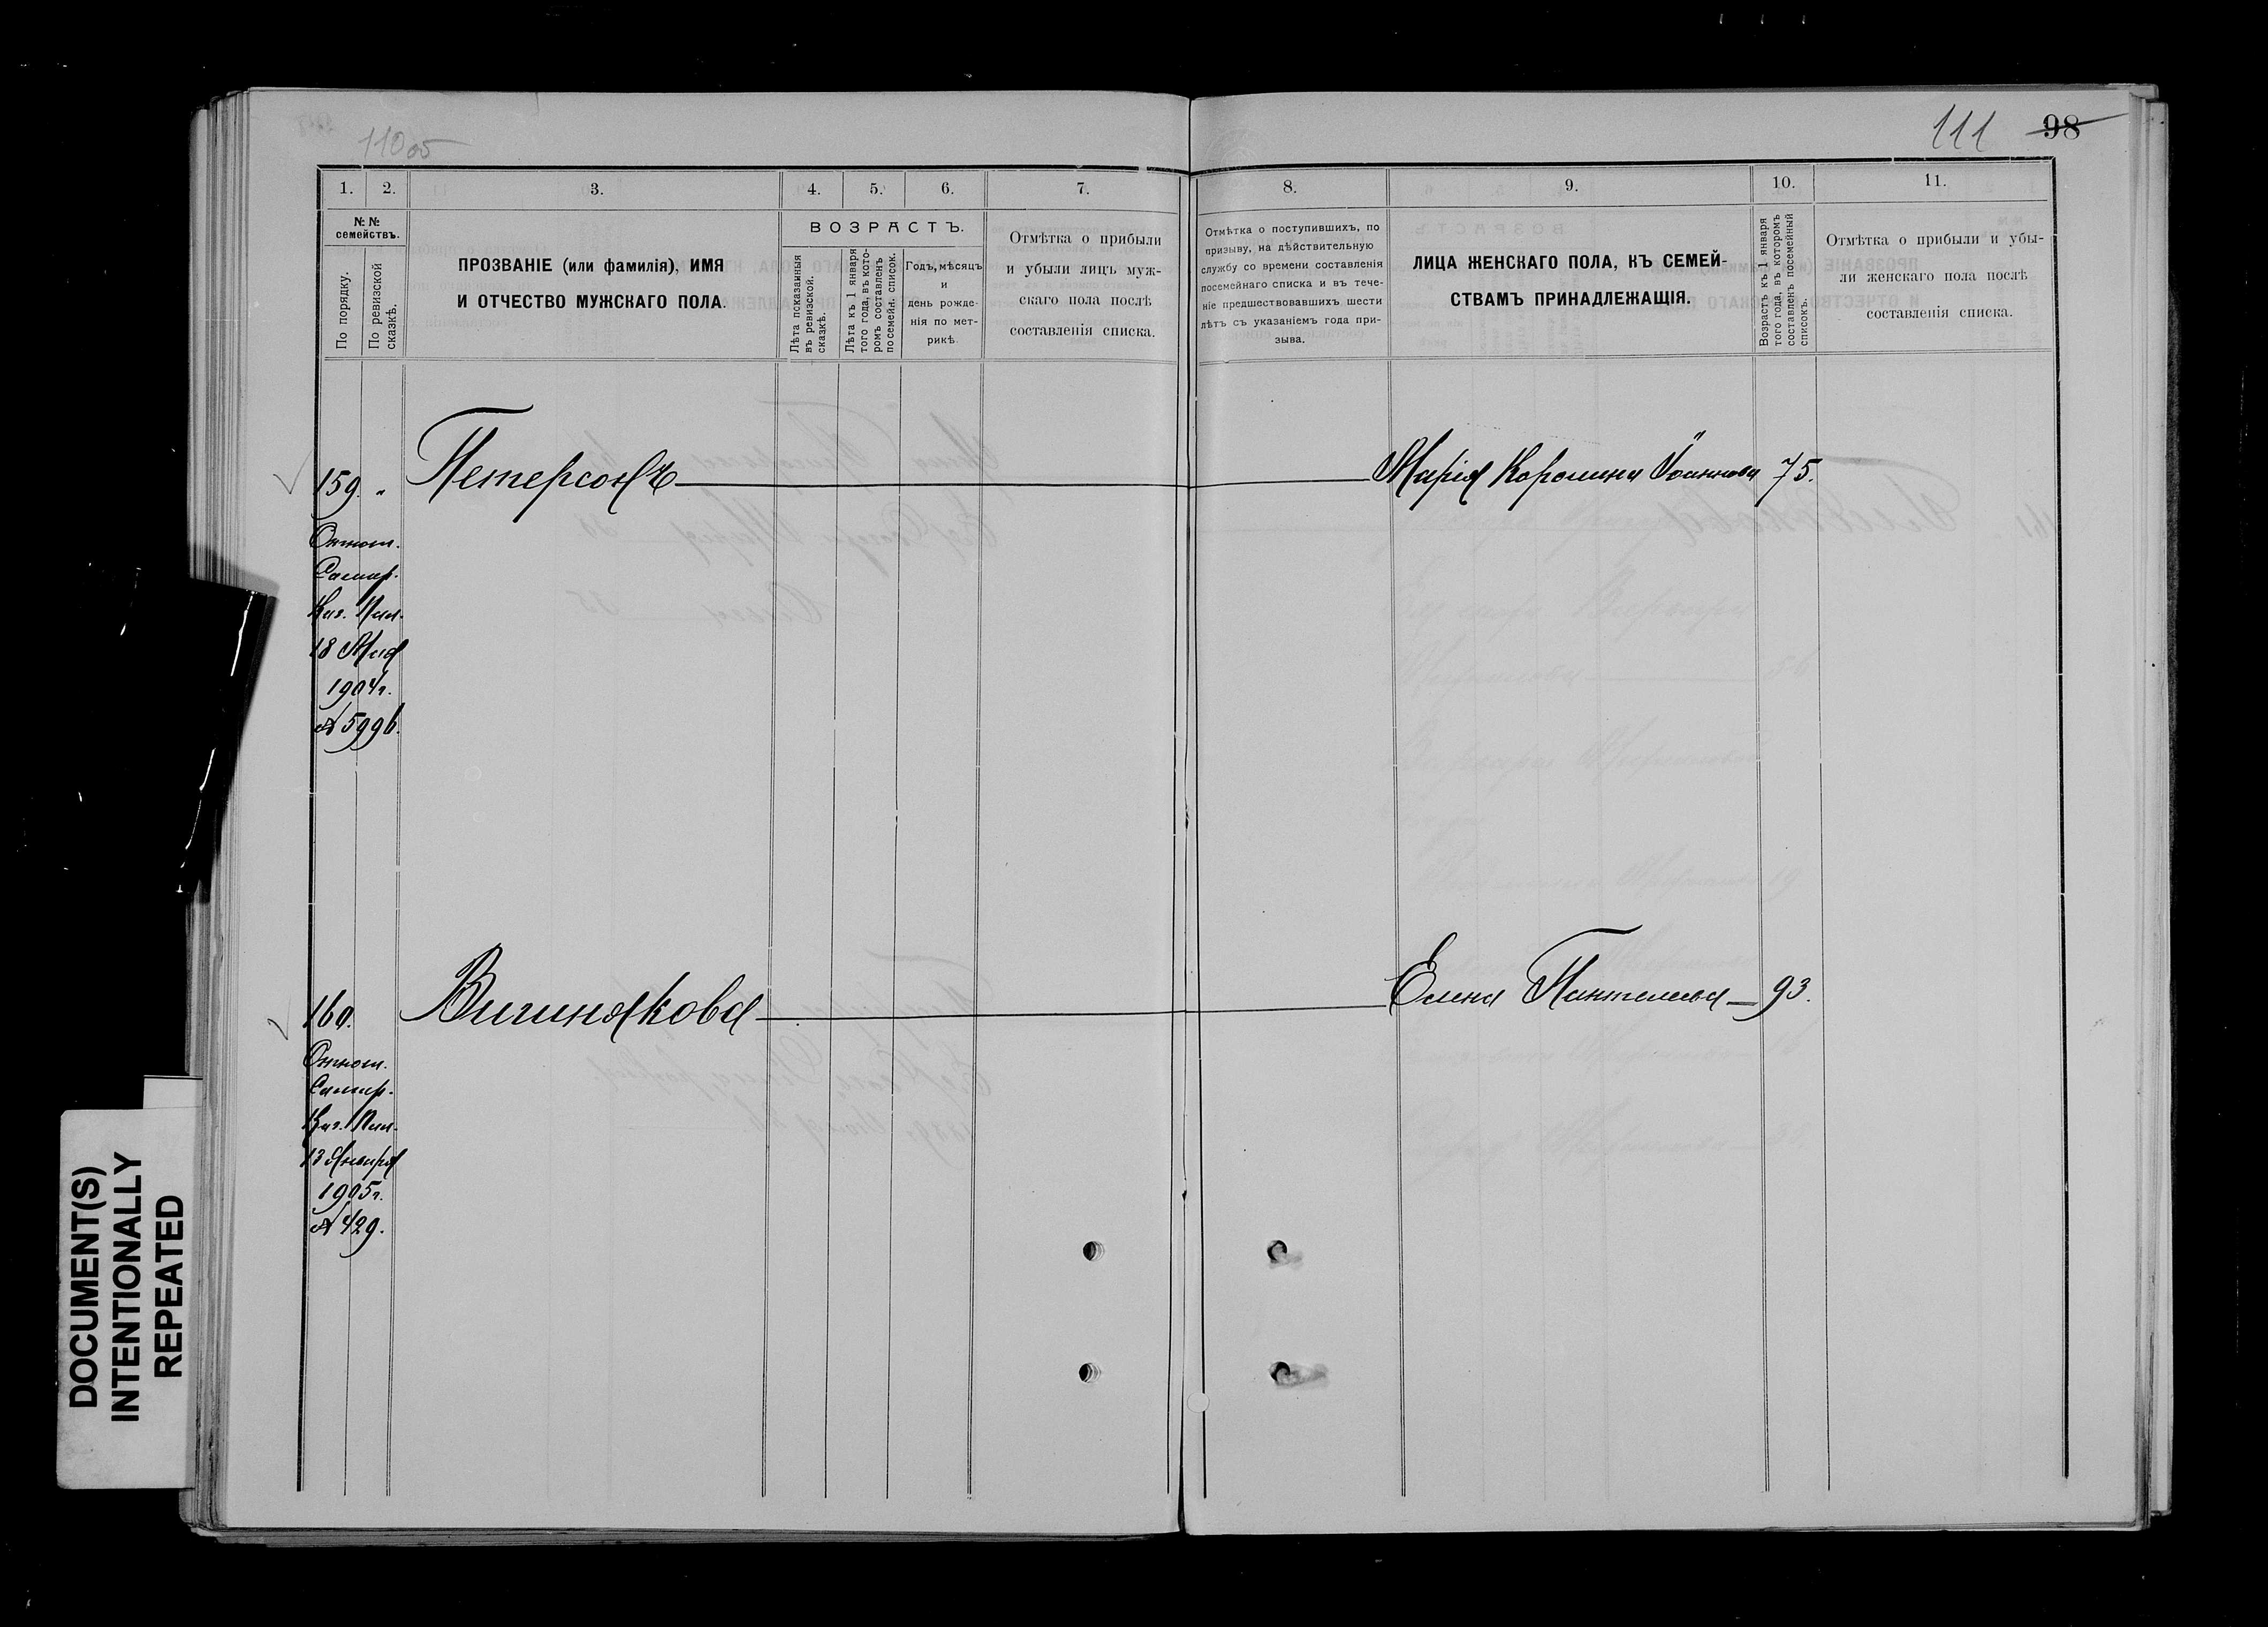 110 об
111 98
1. 2. 3. 4. 5. 6. 7. 8. 9. 10. 11.
№ №
семействъ.
По порядку.
По ревизской
сказкѣ.
ПРОЗВАНІЕ (или фамилія), ИМЯ
И ОТЧЕСТВО МУЖСКАГО ПОЛА.
ВОЗРАСТЪ.
Лѣта показанныя
въ ревизской.
сказкѣ.
Лѣта къ 1 января
того года, въ кото-
ромъ составленъ
посемейн. список.
Годъ, мѣсяцъ
и
день рожде-
нія по мет-
рикѣ
Отмѣтка о прибыли
и убыли лицъ муж-
скаго пола послѣ
составленія списка.
Отмѣтка о поступившихъ, по
призыву, на дѣйствительную
службу со времени составленія
посемейнаго списка и въ тече-
ніе предшествовавшихъ шести
лѣтъ съ указаніемъ года при-
зыва.
ЛИЦА ЖЕНСКАГО ПОЛА, КЪ СЕМЕЙ-
СТВАМЪ ПРИНАДЛЕЖАЩІЯ.
Возрастъ къ 1 января
того года, въ которомъ
составленъ посемейный
списокъ.
Отмѣтка о прибыли и убы-
ли женскаго пола послѣ
составленія списка.
159. " Петерсонъ Марія Каролина Іоаннова 75.
Отнош.
Самар.
Каз. Пал.
18 Мая
1904 г.
№ 5996.
160. Вигинякова Елена Пантелеева 93.
Отнош.
Самар.
Каз. Пал.
13 Января
1905 г.
№ 429.
DOCUMENT(S)
INTENTIONALLY
REPEATED